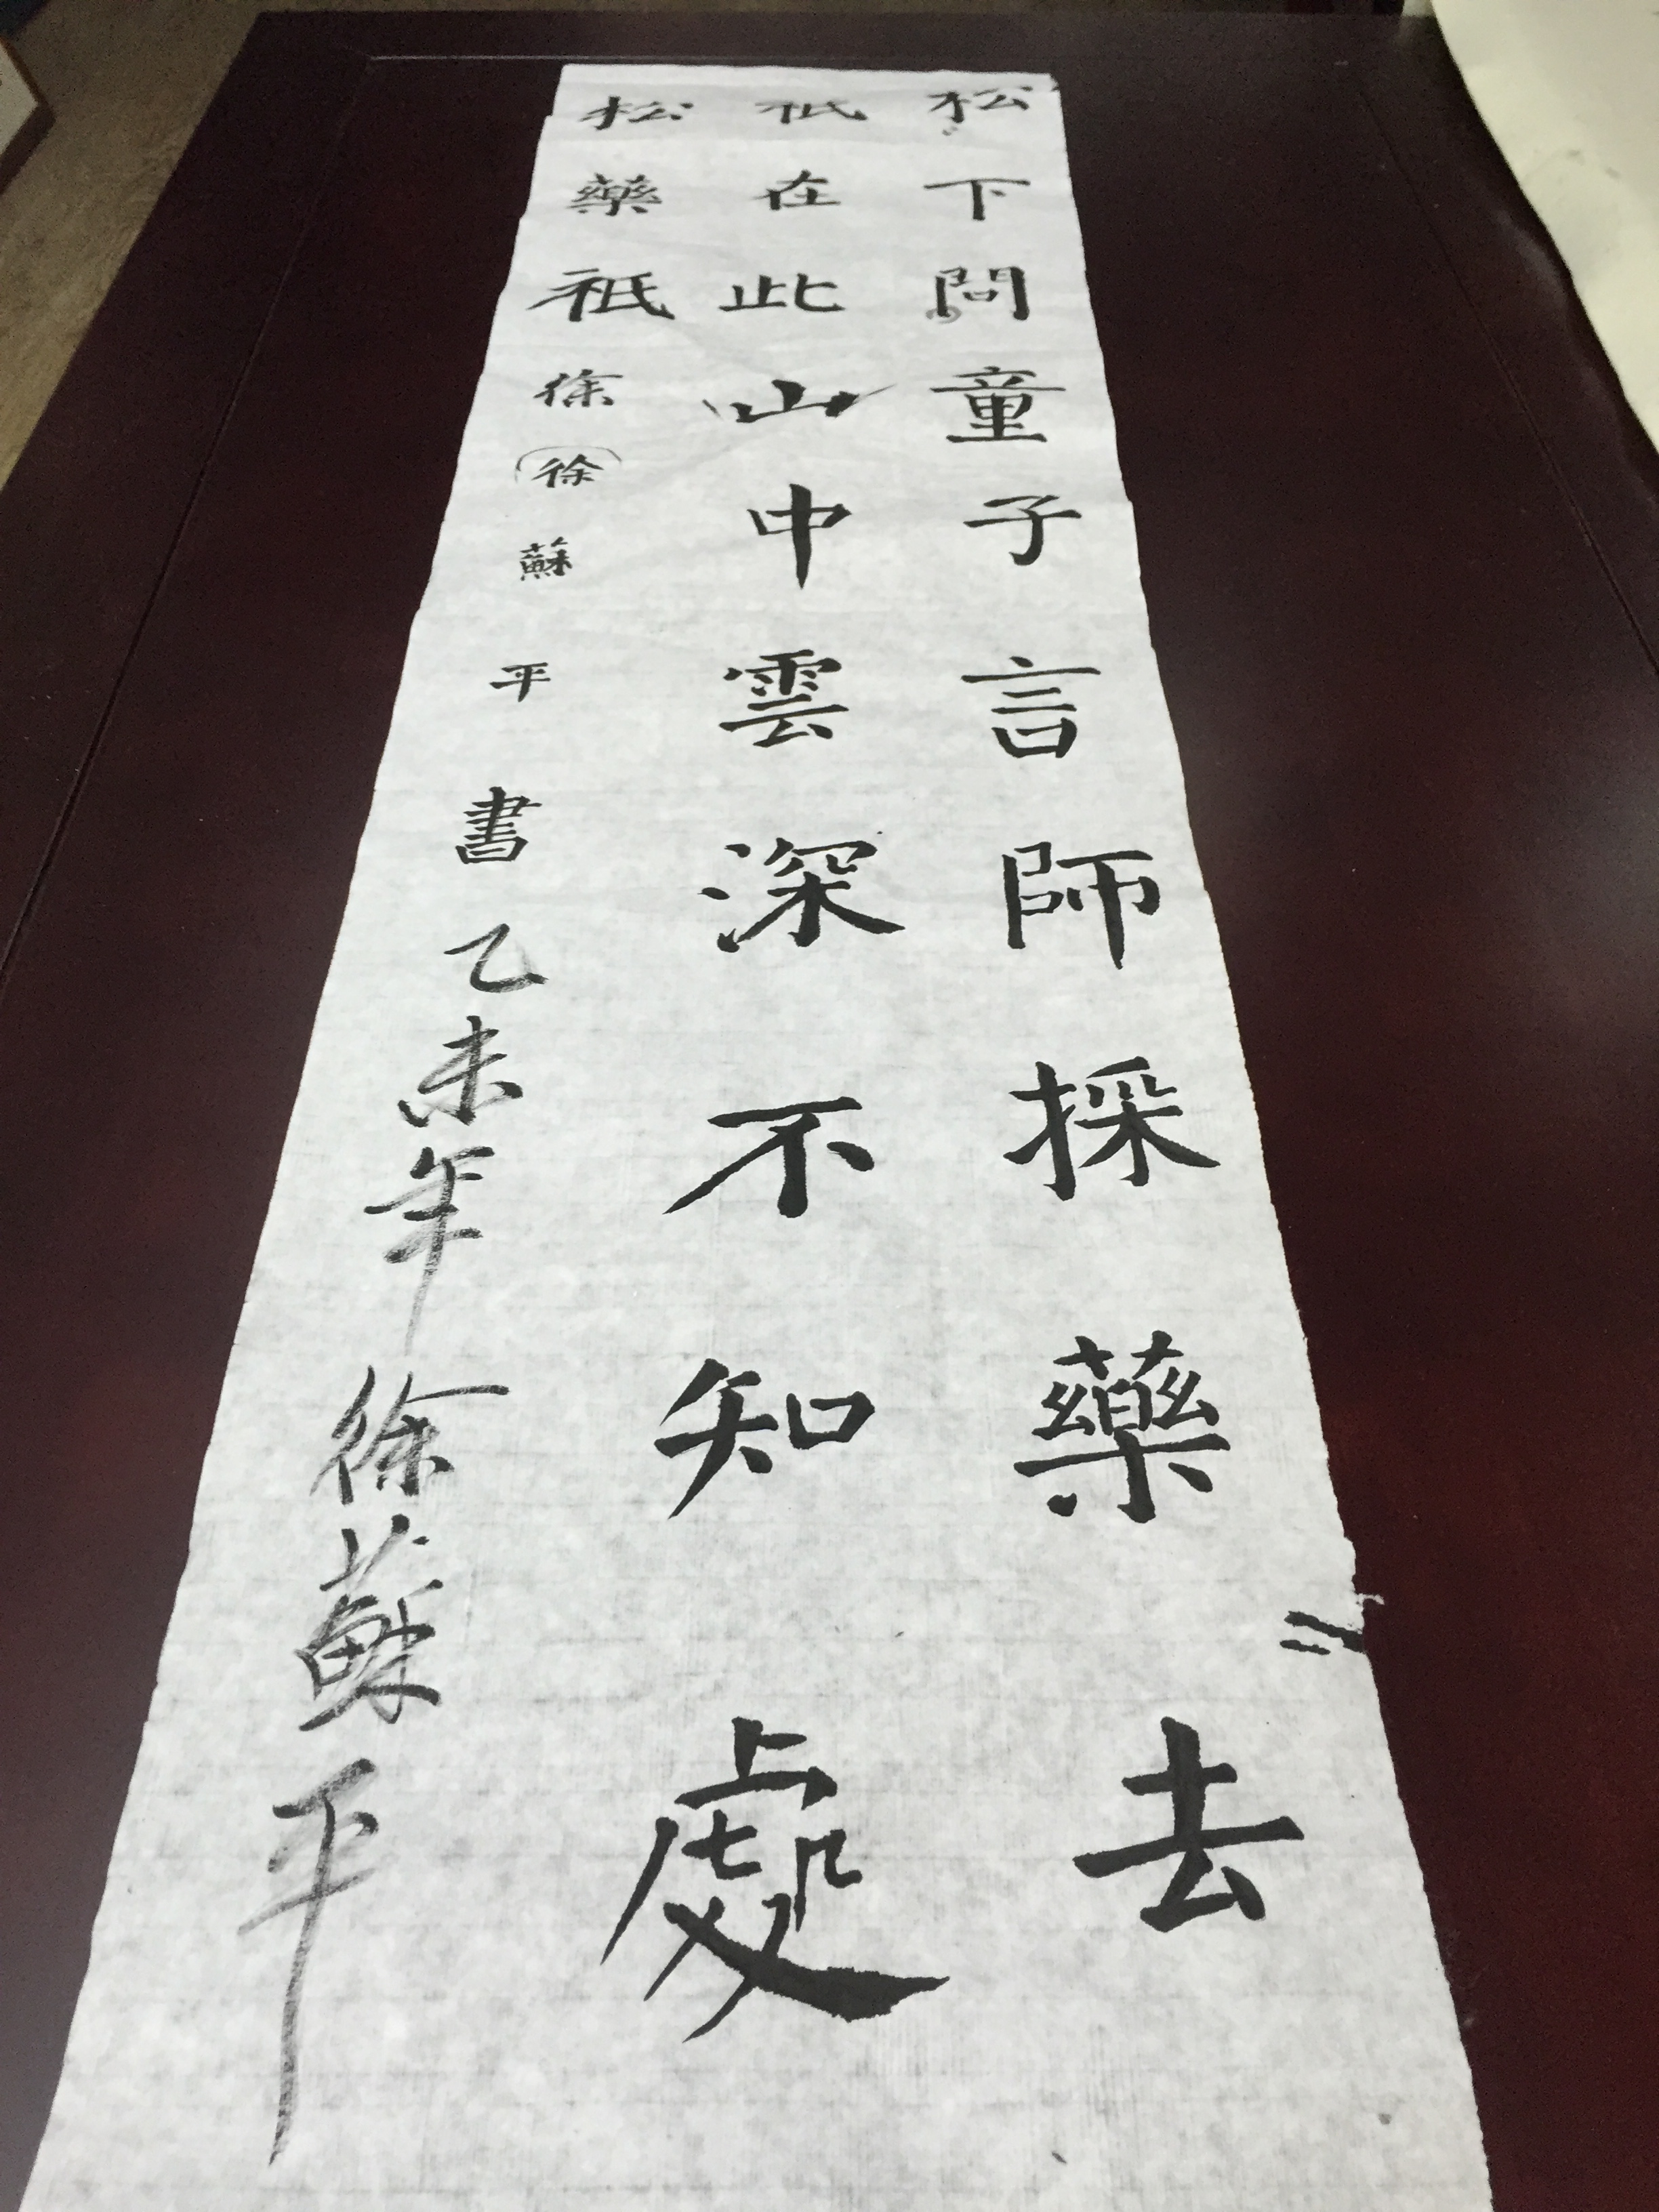 松下問童子言師採藥去
祇在此山中雲深不知處
松藥祇徐(徐)蘇平書乙未年徐蘇平